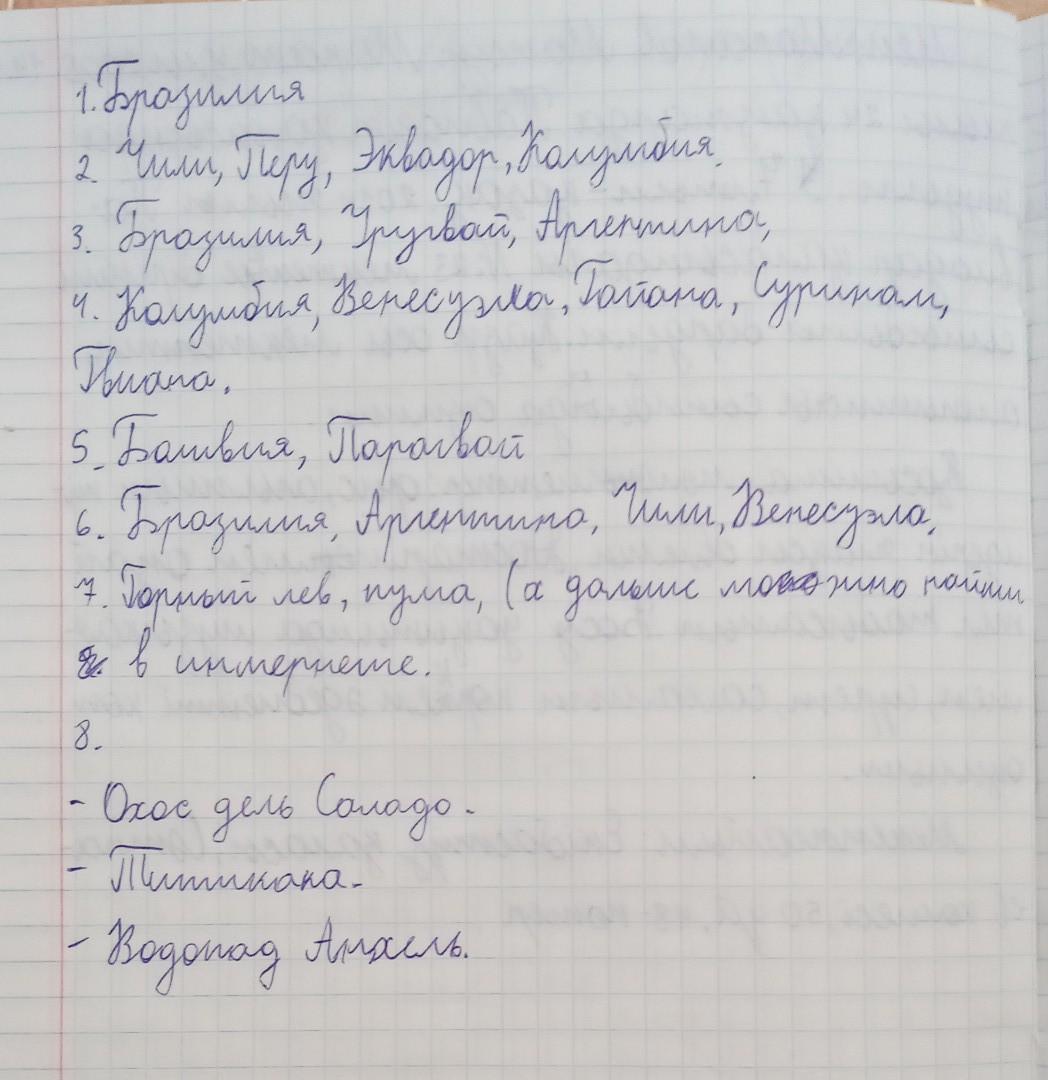 1. Бразилия
2. Чили, Перу, Эквадор, Колумбия.
3. Бразилия, Уругвай, Аргентина,
4. Колумбия, Венесуэла, Гайана, Суринам,
Гвиана.
5. Боливия, Парагвай
6. Бразилия, Аргентина, Чили, Венесуэла,
7. Горный лев, пума, (а дальше можно найти
в интернете.
8.
- Охос дель Саладо.
- Титикака.
- Водопад Анхель.